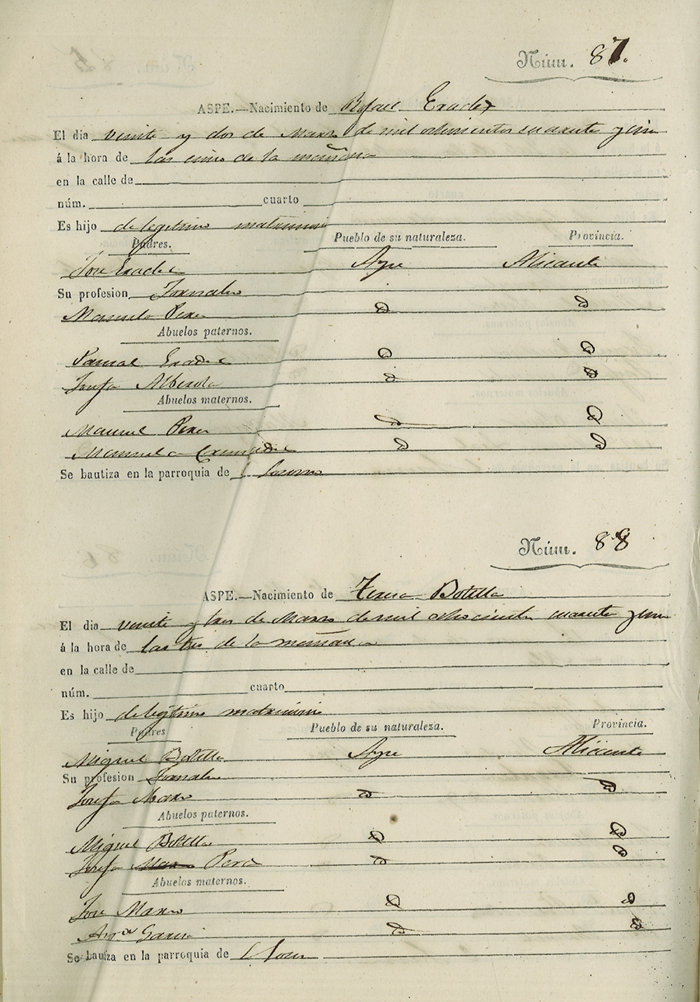 Núm. 87.
ASPE.—Nacimiento de Rafael
El dia veinte y dos de Marzo de mil ochocientos cuarenta y
á la hora de las cinco de la mañana
en la calle de
núm. cuarto
Es hijo de legitimo matrimonio
Padres. Pueblo de su naturaleza. Provincia.
Jose Aspe Alicante
Su profesion Jornalero
Manuela Perez D D
Abuelos paternos.
Pascual D D
Josefa Alberola D D
Abuelos maternos.
Manuel Perez D D
Manuela D D
Se bautiza en la parroquia de
Núm. 88
ASPE.—Nacimiento de Teresa Botella
El dia veinte y tres de Marzo de mil ochocientos cuarenta y
á la hora de las tres de la mañana
en la calle de
núm. cuarto
Es hijo de legitimo matrimonio
Padres Pueblo de su naturaleza. Provincia.
Miguel Botella Aspe Alicante
Su profesion Jornalero
Josefa D D
Abuelos paternos.
Miguel Botella D D
Josefa D D
Abuelos maternos.
Jose D D
Garcia D D
Se bautiza en la parroquia de